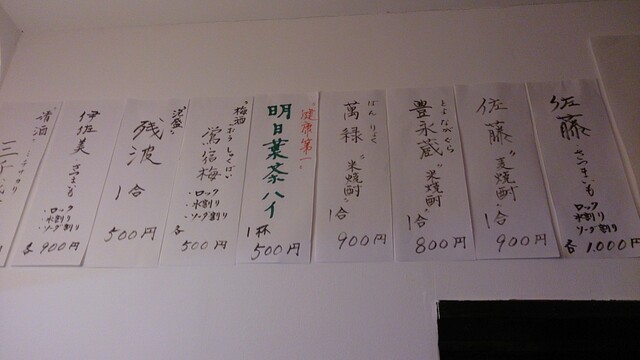 佐藤 さつまいも
ロック
水割り
ソーダ割り
各 1,000円
佐藤 "麦焼酎"
1合
900円
とよながくら
豊永蔵 "米焼酎"
1合
800円
ばんりょく
萬緑 "米焼酎"
1合
900円
"健康第一"
明日葉茶ハイ
1杯
500円
"梅酒"
おうしゅくばい
鶯宿梅
・ロック
・水割り
・ソーダ割り
各 500円
"泡盛"
残波
1合
500円
伊佐美 さつまいも
・ロック
・水割り
・ソーダ割り
各 900円
"清酒"